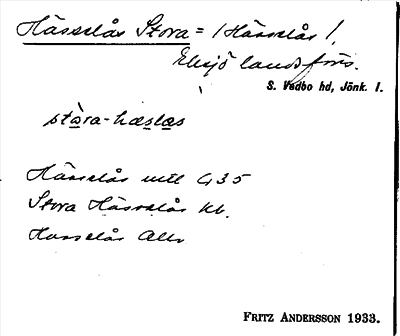 Hässelås Stora = / Hässelås /,
Eksjö landsförs.
S. Vedbo hd, Jönk. l.
stὰra-hæslæs
Hässelås mtl G 35
Stora Hässelås Kb.
Hasselås Allm
FRITZ ANDERSSON 1933.